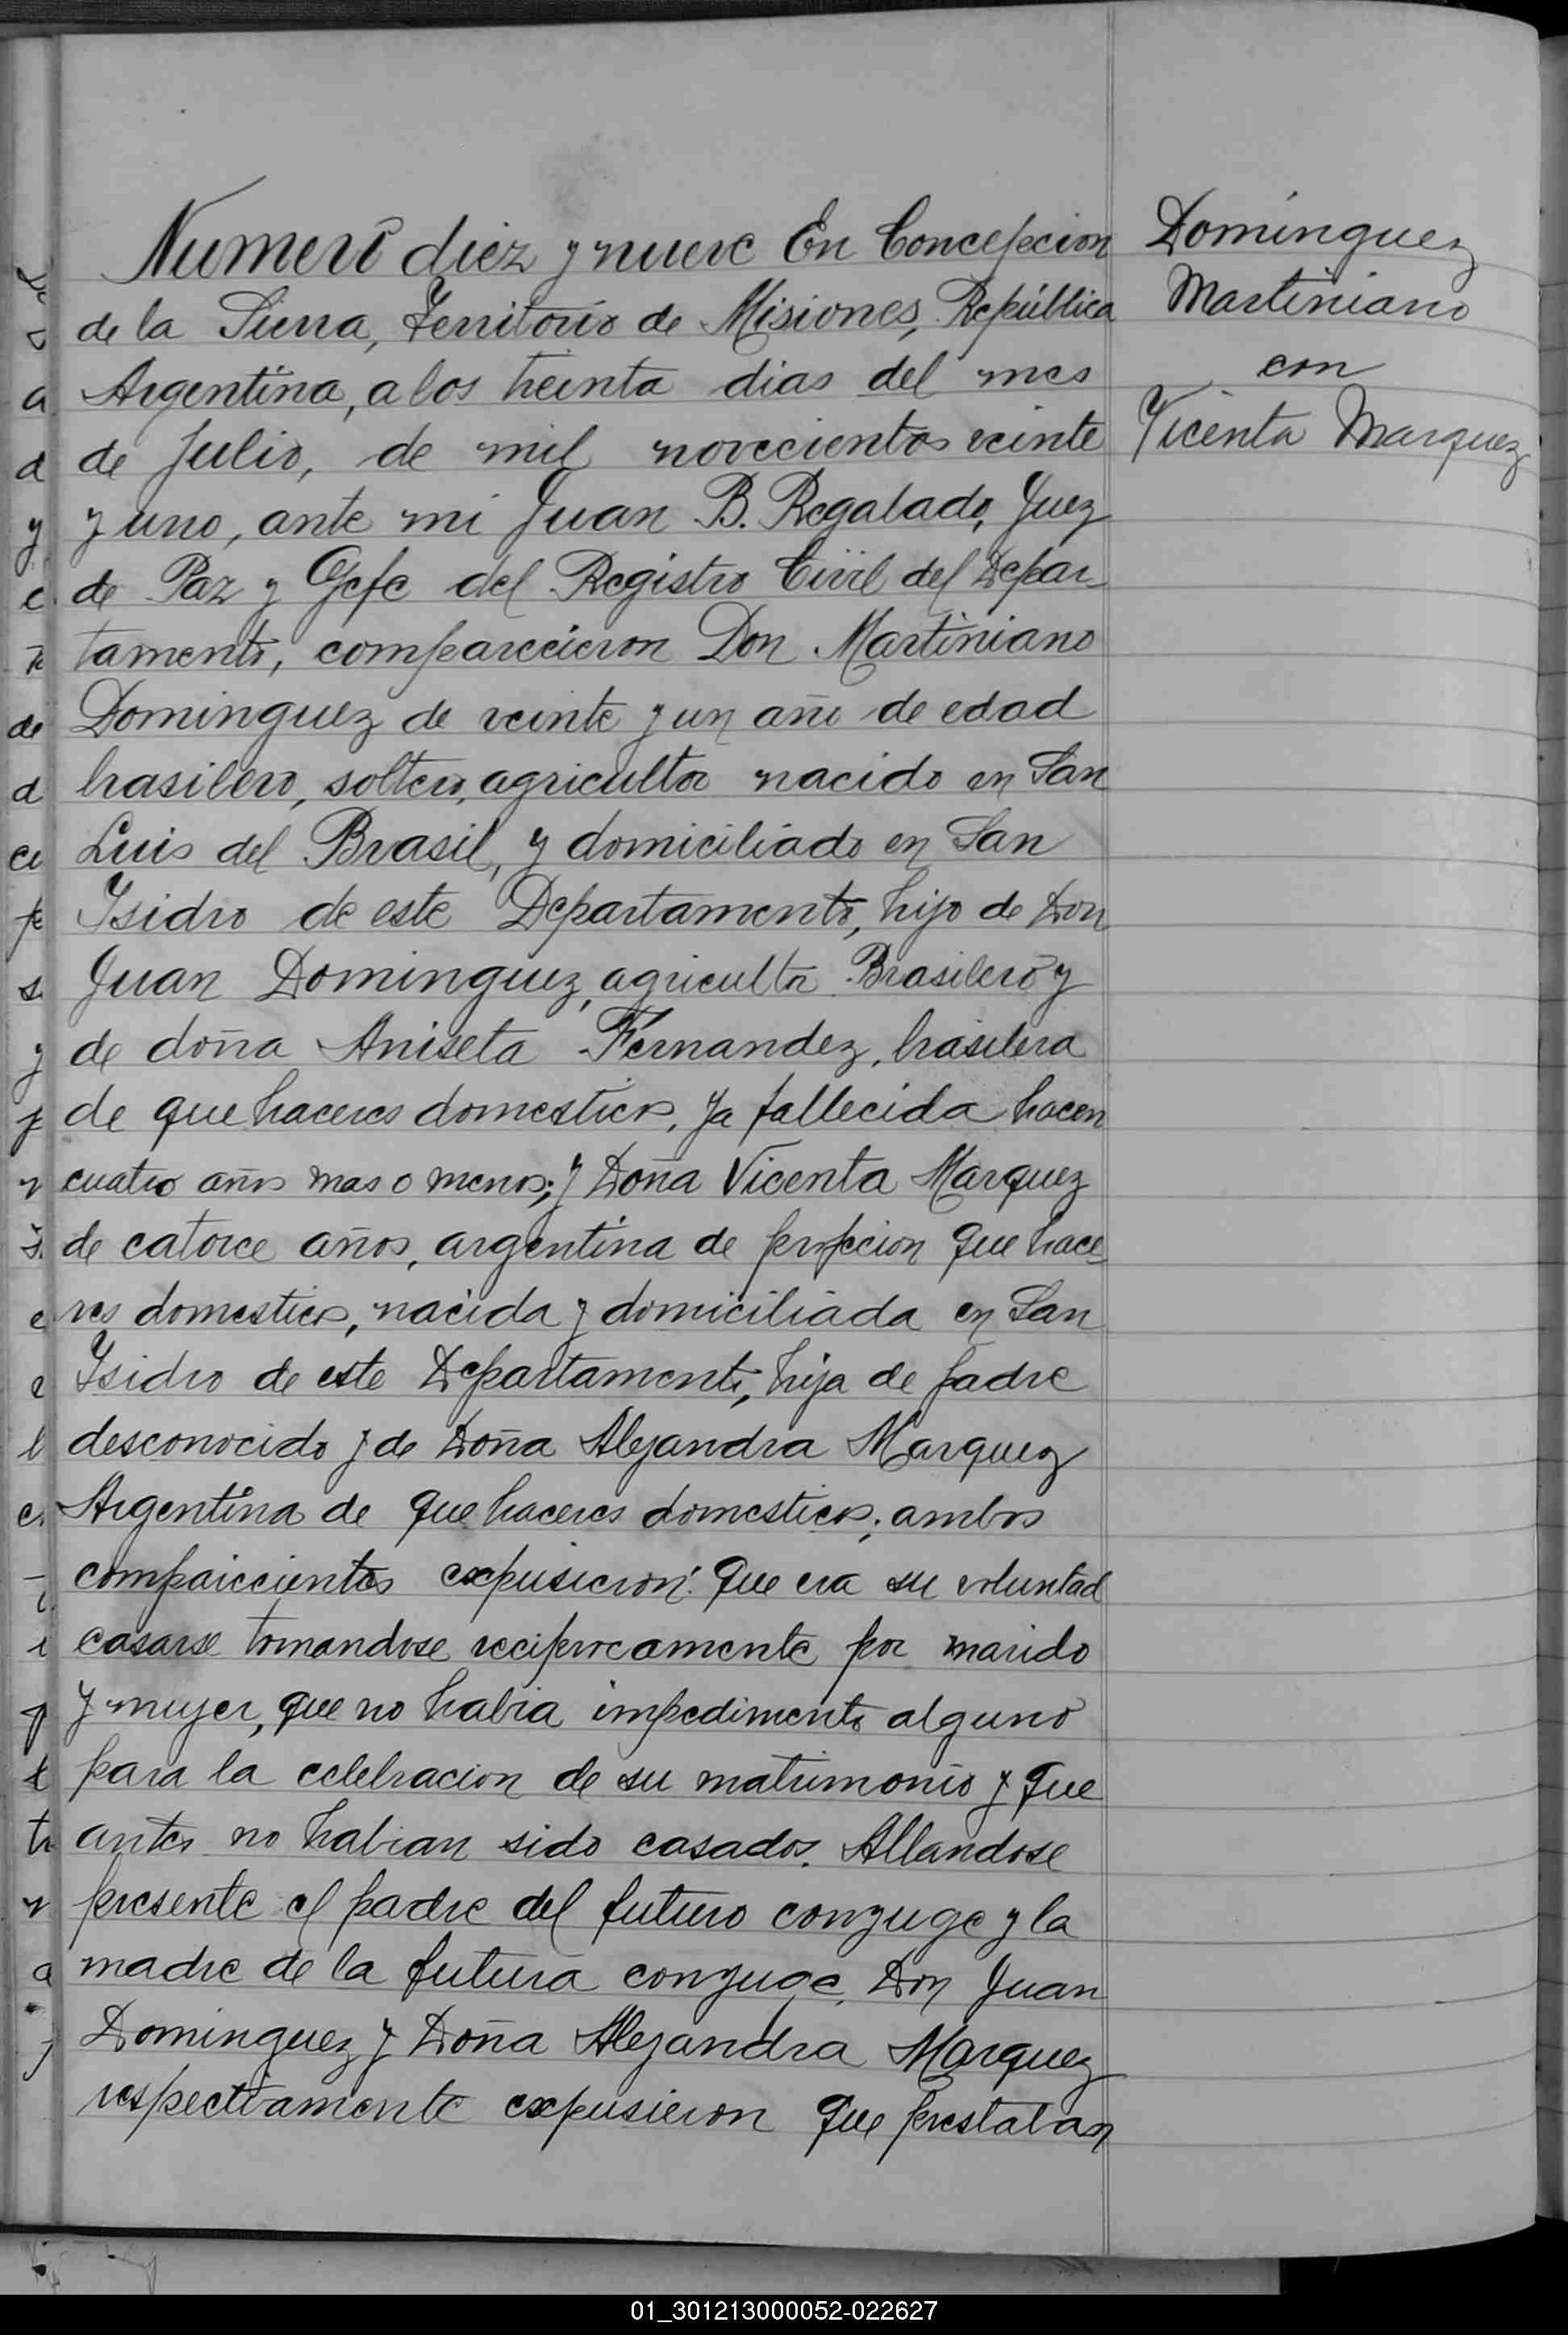 Numero diez y nueve En Concepcion
de la Sierra, Territorio de Misiones, República
Argentina, a los treinta dias del mes
de Julio, de mil novecientos veinte
y uno, ante mi Juan B. Regalado, Juez
de Paz y Gefe del Registro Civil del Depar-
tamento, comparecieron Don Martiniano
Dominguez de veinte y un año de edad
brasilero, soltero, agricultor nacido en San
Luis del Brasil, y domiciliado en San
Isidro de este Departamento, hijo de Don
Juan Dominguez, agricultor Brasilero y
de doña Aniseta Fernandez, brasilera
de que haceres domesticos, ya fallecida hacen
cuatro años mas o menos; y Doña Vicenta Marquez
de catorce años, argentina de profecion que hace-
res domesticos, nacida y domiciliada en San
Isidro de este Departamento, hija de padre
desconocido y de Doña Alejandra Marquez
Argentina de que haceres domesticos; ambos
comparecientes expusieron: que era su voluntad
casarse tomandose reciprocamente por marido
y mujer, que no habia impedimento alguno
para la celebracion de su matrimonio y que
antes no habian sido casados. Allandose
presente el padre del futuro conyuge y la
madre de la futura conyuge, Don Juan
Dominguez y Doña Alejandra Marquez
respectivamente expusieron que prestaban
Dominguez
Martiniano
con
Vicenta Marquez
01_301213000052-022627